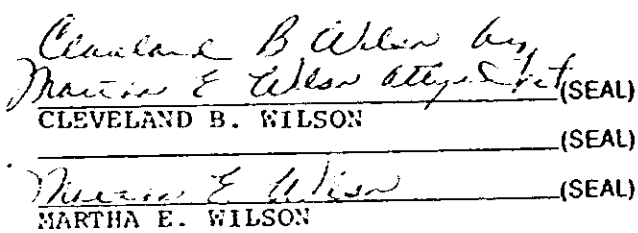 Cleveland B Wilson by
Martha E Wilson atty in fact (SEAL)
CLEVELAND B. WILSON
(SEAL)
Martha E Wilson (SEAL)
MARTHA E. WILSON